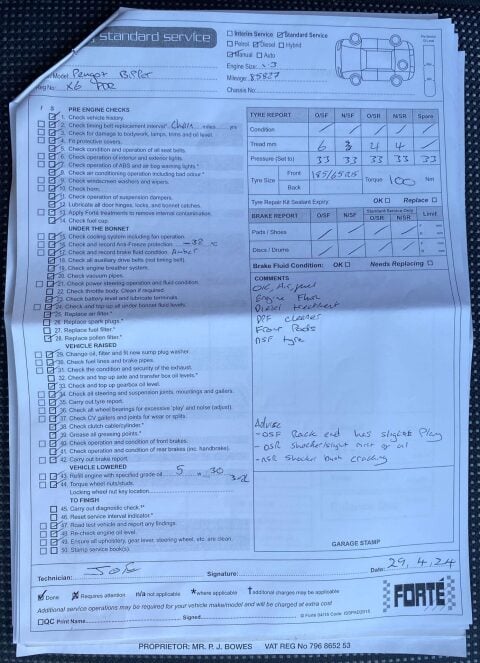 standard service
Interim Service Standard Service
Petrol Diesel Hybrid
Manual Auto
Model: Peugot Bipper
Engine Size: 1.3
Reg No: X6 PDR
Mileage: 85827
Chassis No:
PRE ENGINE CHECKS
1. Check vehicle history.
2. Check timing belt replacement interval* Chain miles yrs
3. Check for damage to bodywork, lamps, trims and oil level.
4. Fit protective covers.
5. Check condition and operation of all seat belts.
6. Check operation of interior and exterior lights.
7. Check operation of ABS and air bag warning lights.*
8. Check air conditioning operation including bad odour.*
9. Check windscreen washers and wipers.
10. Check horn.
11. Check operation of suspension dampers.
12. Lubricate all door hinges, locks, and bonnet catches.
13. Apply Forté treatments to remove internal contamination.
14. Check fuel cap.
UNDER THE BONNET
15. Check cooling system including fan operation.
16. Check and record Anti-Freeze protection. -38 °C
17. Check and record brake fluid condition. Amber
18. Check all auxiliary drive belts (not timing belt).
19. Check engine breather system.
20. Check vacuum pipes.
21. Check power steering operation and fluid condition.
22. Check throttle body. Clean if required.
23. Check battery level and lubricate terminals.
24. Check and top up all under bonnet fluid levels.
25. Replace air filter.*
26. Replace spark plugs.*
27. Replace fuel filter.*
28. Replace pollen filter.*
VEHICLE RAISED
29. Change oil, filter and fit new sump plug washer.
30. Check fuel lines and brake pipes.
31. Check the condition and security of the exhaust.
32. Check and top up axle and transfer box oil levels.*
33. Check and top up gearbox oil level.
34. Check all steering and suspension joints, mountings and gaiters.
35. Carry out tyre report.
36. Check all wheel bearings for excessive 'play' and noise (adjust).
37. Check CV gaiters and joints for wear or splits.
38. Check clutch cable/cylinder.*
39. Grease all greasing points.*
40. Check operation and condition of front brakes.
41. Check operation and condition of rear brakes (inc. handbrake).
42. Carry out brake report.
VEHICLE LOWERED
43. Refill engine with specified grade oil. 5 w 30
44. Torque wheel nuts/studs.
Locking wheel nut key location
TO FINISH
45. Carry out diagnostic check.†*
46. Reset service interval indicator.*
47. Road test vehicle and report any findings.
48. Re-check engine oil level.
49. Ensure all upholstery, gear lever, steering wheel, etc. are clean.
50. Stamp service book(s).
TYRE REPORT O/SF N/SF O/SR N/SR Spare
Condition
Tread mm 6 3 4 4
Pressure (Set to) 33 33 33 33 33
Tyre Size Front 185/65R15 Torque 100 Nm
Back
Tyre Repair Kit Sealant Expiry: OK Replace
BRAKE REPORT O/SF N/SF Standard Service Only O/SR N/SR Limit
Pads / Shoes
Discs / Drums
Brake Fluid Condition: OK Needs Replacing
COMMENTS
Oil, Air, fuel
Engine Flush
Diesel treatment
DPF cleaner
Front Pads
NSF tyre
Advise
- OSF Rack end has slight Play
- OSR Shocker slight mist of oil
- NSR Shocker bush cracking
GARAGE STAMP
Technician: Joe Signature: Date: 29.4.24
Done Requires attention n/a not applicable *where applicable †additional charges may be applicable
Additional services may be required for your vehicle make/model and will be charged at extra cost
QC Print Name Signed
FORTÉ
PROPRIETOR: MR. P. J. BOWES VAT REG No 796 8652 53